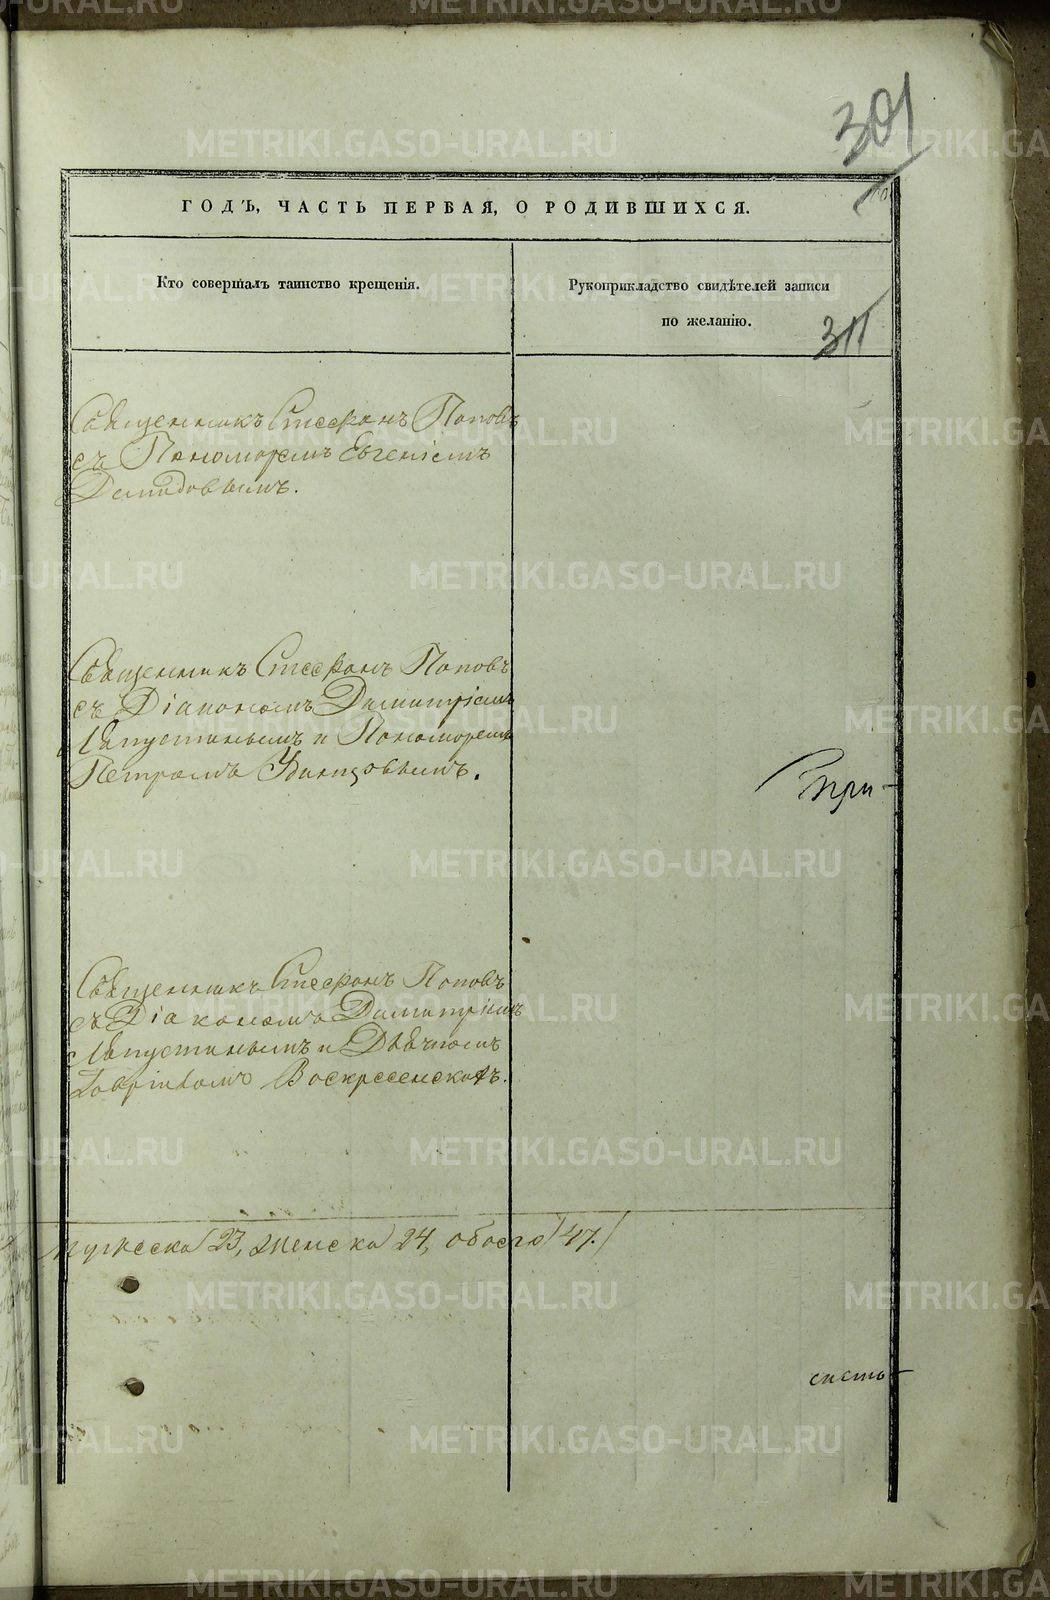 301
ГОДЪ, ЧАСТЬ ПЕРВАЯ, О РОДИВШИХСЯ.
Кто совершалъ таинство крещенія.
Рукоприкладство свидѣтелей записи
по желанію.
311
Священникъ Стефанъ Поповъ
съ Пономаремъ Евгеніемъ
Демидовымъ.
Священникъ Стефанъ Поповъ
съ Діакономъ Димитріемъ
и Пономаремъ
Петромъ
При-
Священникъ Стефанъ Поповъ
съ Діакономъ Димитріемъ
и Дьячкомъ
Воскресенскимъ.
мужеска 23, женска 24, обоего 47.
METRIKI.GASO-URAL.RU